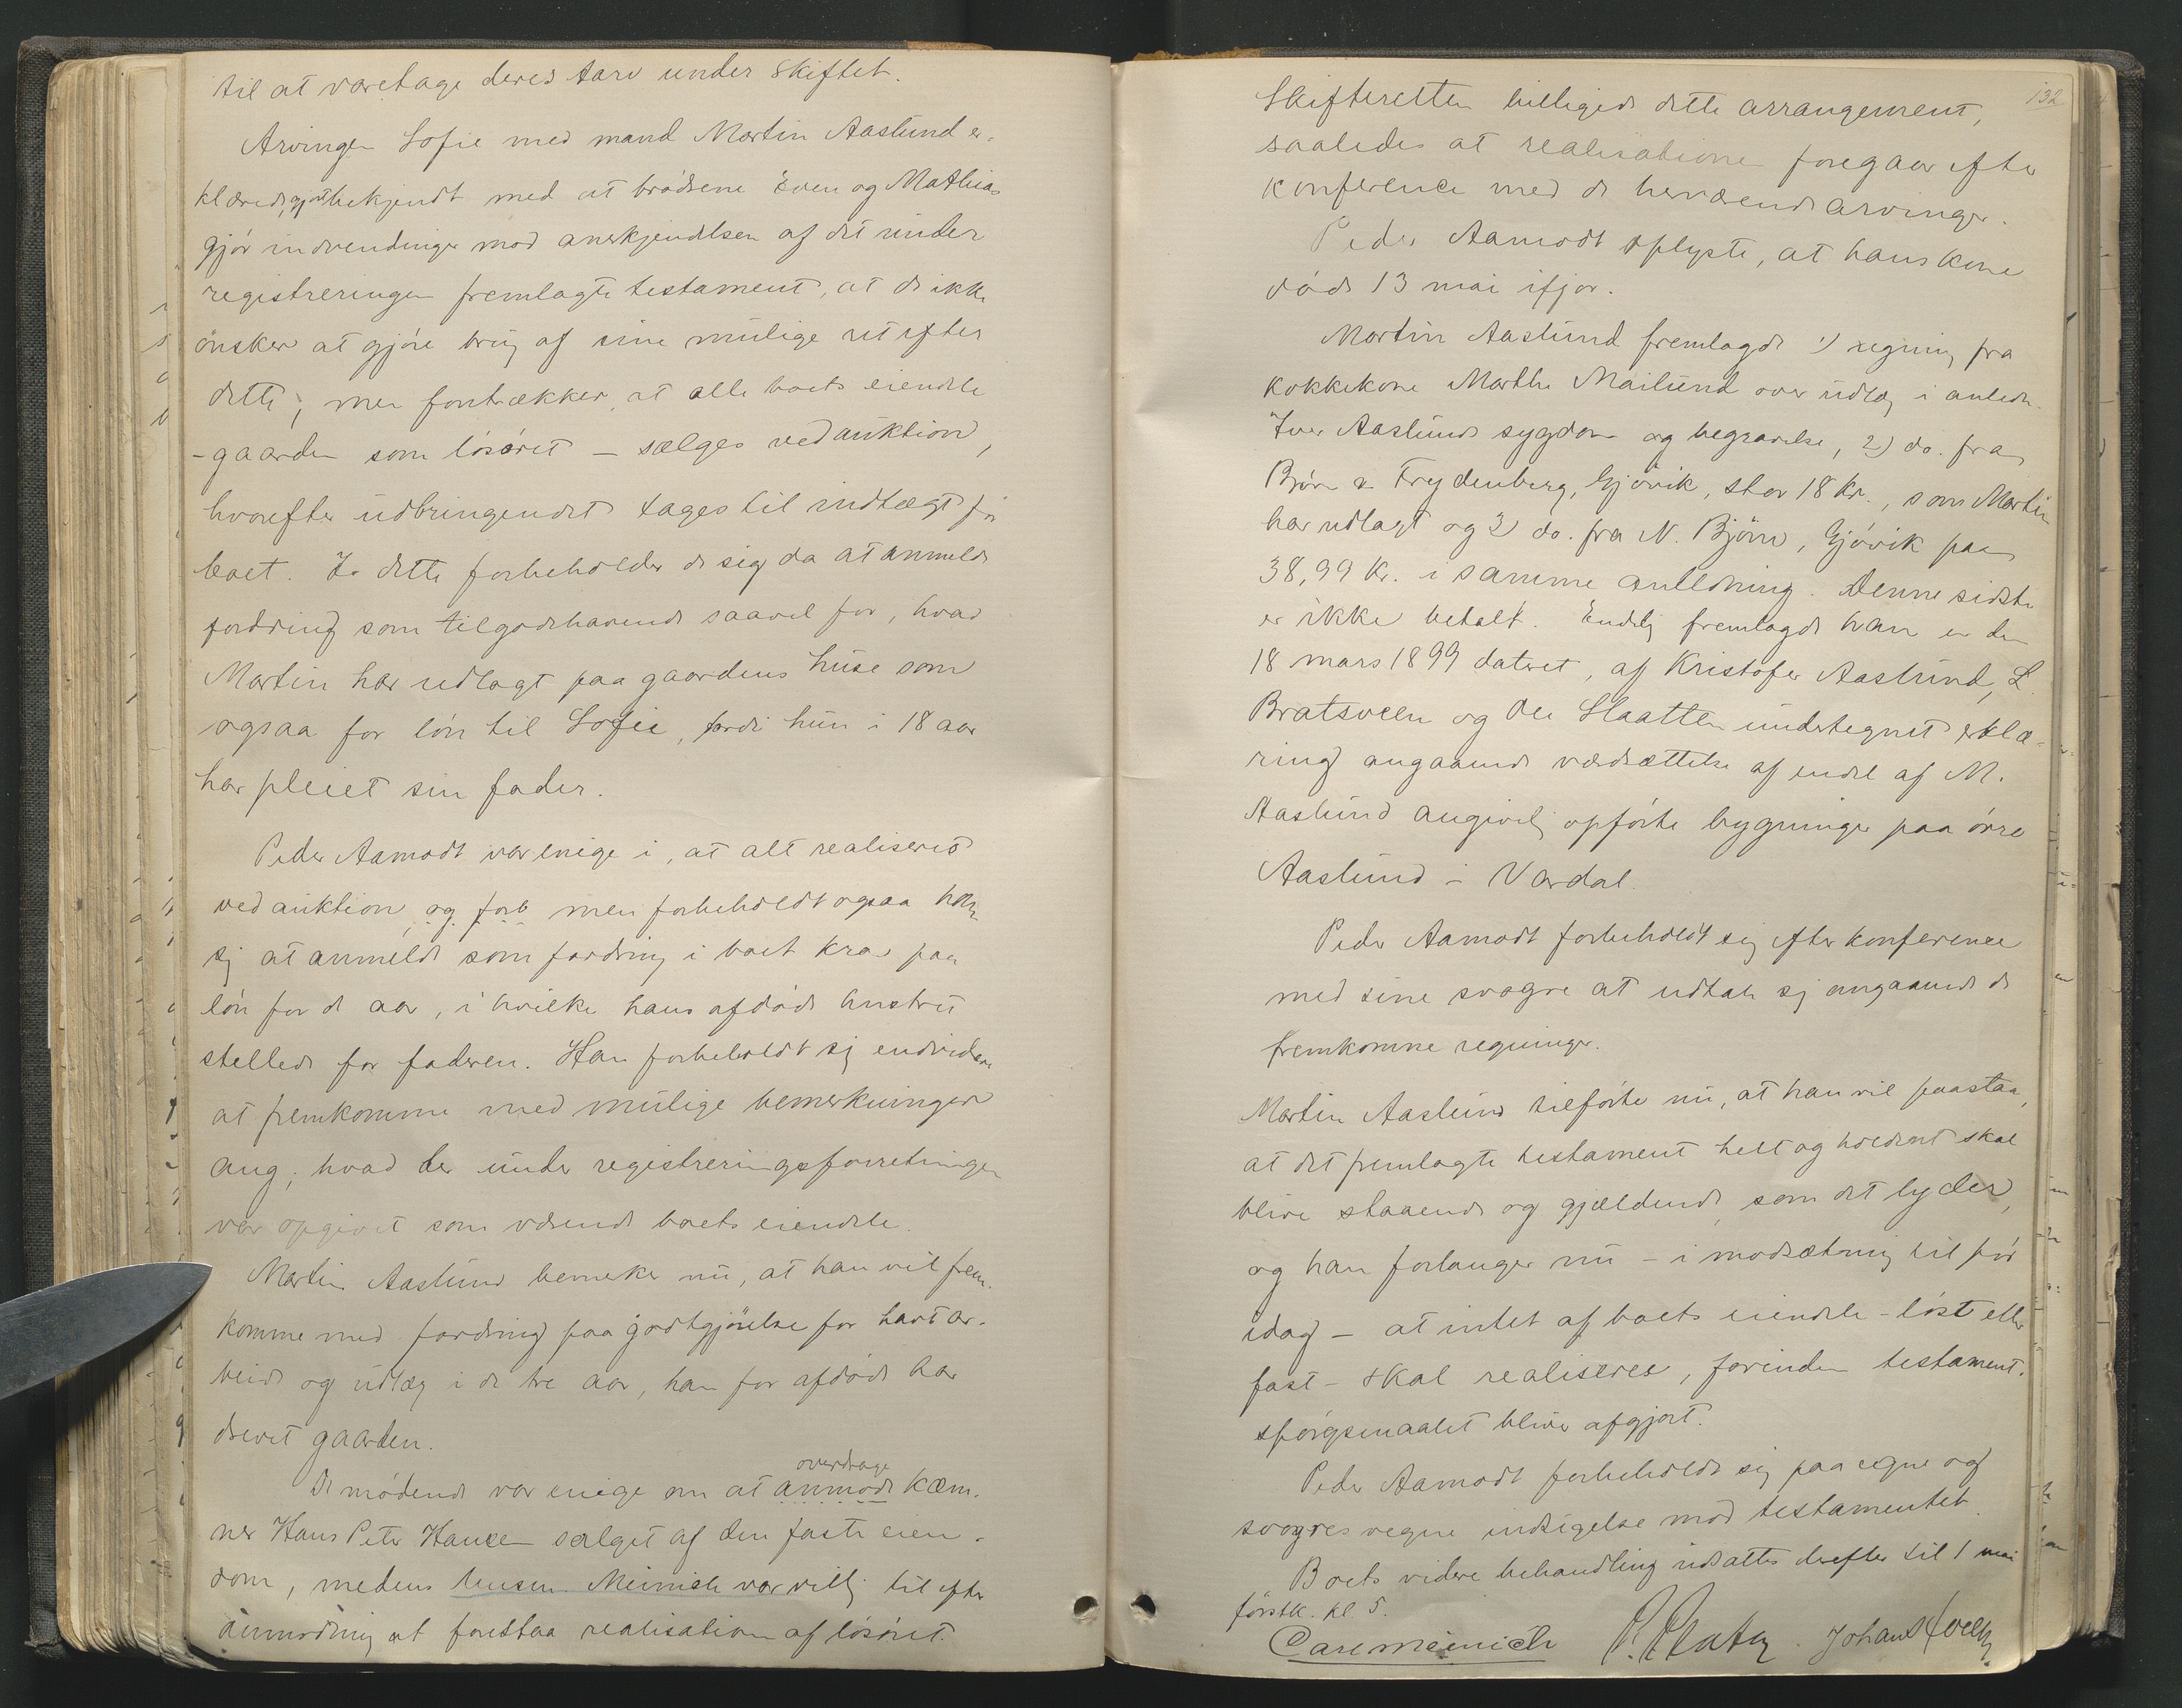 til at varetage deres tarv under skiftet.
Arvingen Sofie med mand Martin Aaslund er-
klærede, gjort bekjendt med at brødrene Even og Mathias
gjør indvendinger mod anerkjendelsen af det under
registreringen fremlagte testament, at de ikke
ønsker at gjøre brug af sine mulige ret efter
dette; men foretrækker, at alle boets eiendele
- gaarden som løsøret - sælges ved auktion,
hvorefter udbringendet tages til indtægt for
boet. I dette forbeholder de sig da at anmelde
fordring som tilgodehavende saavel for, hvad
Martin har udlagt paa gaardens huse som
ogsaa for løn til Sofie, fordi hun i 18 aar
har pleiet sin fader.
Peder Aamodt var enige i, at alt realiseres
ved auktion, og forb men forbeholdt ogsaa han
sig at anmelde som fordring i boet krav paa
løn for de aar, i hvilke hans afdøde hustru
stellede for faderen. Han forbeholdt sig endvidere
at fremkomme med mulige bemerkninger
ang. hvad der under registreringsforretningen
var opgivet som værende boets eiendele.
Martin Aaslund bemerker nu, at han vil frem-
komme med fordring paa godtgjørelse for havt ar-
beide og udlæg i de tre aar, han for afdøde har
drevet gaarden.
overdrage
De mødende var enige om at anmode kæm-
ner Hans Peter Hansen salget af den faste eien-
dom, medens lensm. Meinich var villig til efter
anmodning at forestaa realisation af løsøret.
132
Skifteretten billigede dette arrangement,
saaledes at realisationen foregaar efter
konference med de herværende arvinger.
Peder Aamodt oplyste, at hans kone
døde 13 mai ifjor.
Martin Aaslund fremlagde 1) regning fra
kokkekone Marthe Mailund over udlæg i anledn.
Iver Aaslunds sygdom og begravelse, 2) do. fra
Bjørn & Frydenberg, Gjøvik, stor 18 kr., som Martin
har udlagt og 3) do. fra N. Bjørn, Gjøvik paa
38,99 kr. i samme anledning. Denne sidste
er ikke betalt. Endelig fremlagde han en den
18 mars 1899 dateret, af Kristofer Aaslund, L.
Bratsveen og Ole Slaatten undertegnet erklæ-
ring angaaende værdsættelse af endel af M.
Aaslund angivelig opførte bygninger paa øvre
Aaslund i Vardal.
Peder Aamodt forbeholdt sig efter konference
med sine svogre at udtale sig angaaende de
fremkomne regninger.
Martin Aaslund tilførte nu, at han vil paastaa,
at det fremlagte testament helt og holdent skal
blive staaende og gjældende, som det lyder,
og han forlanger nu - i modsætning til før
idag - at intet af boets eiendele - løst eller
fast - skal realiseres, forinden testament-
spørgsmaalet bliver afgjort.
Peder Aamodt forbeholdt sig paa egne og
svogres vegne indsigelse mod testamentet.
Boets videre behandling udsattes derefter til 1 mai
førstk. kl 5.
Care Meinich Johan